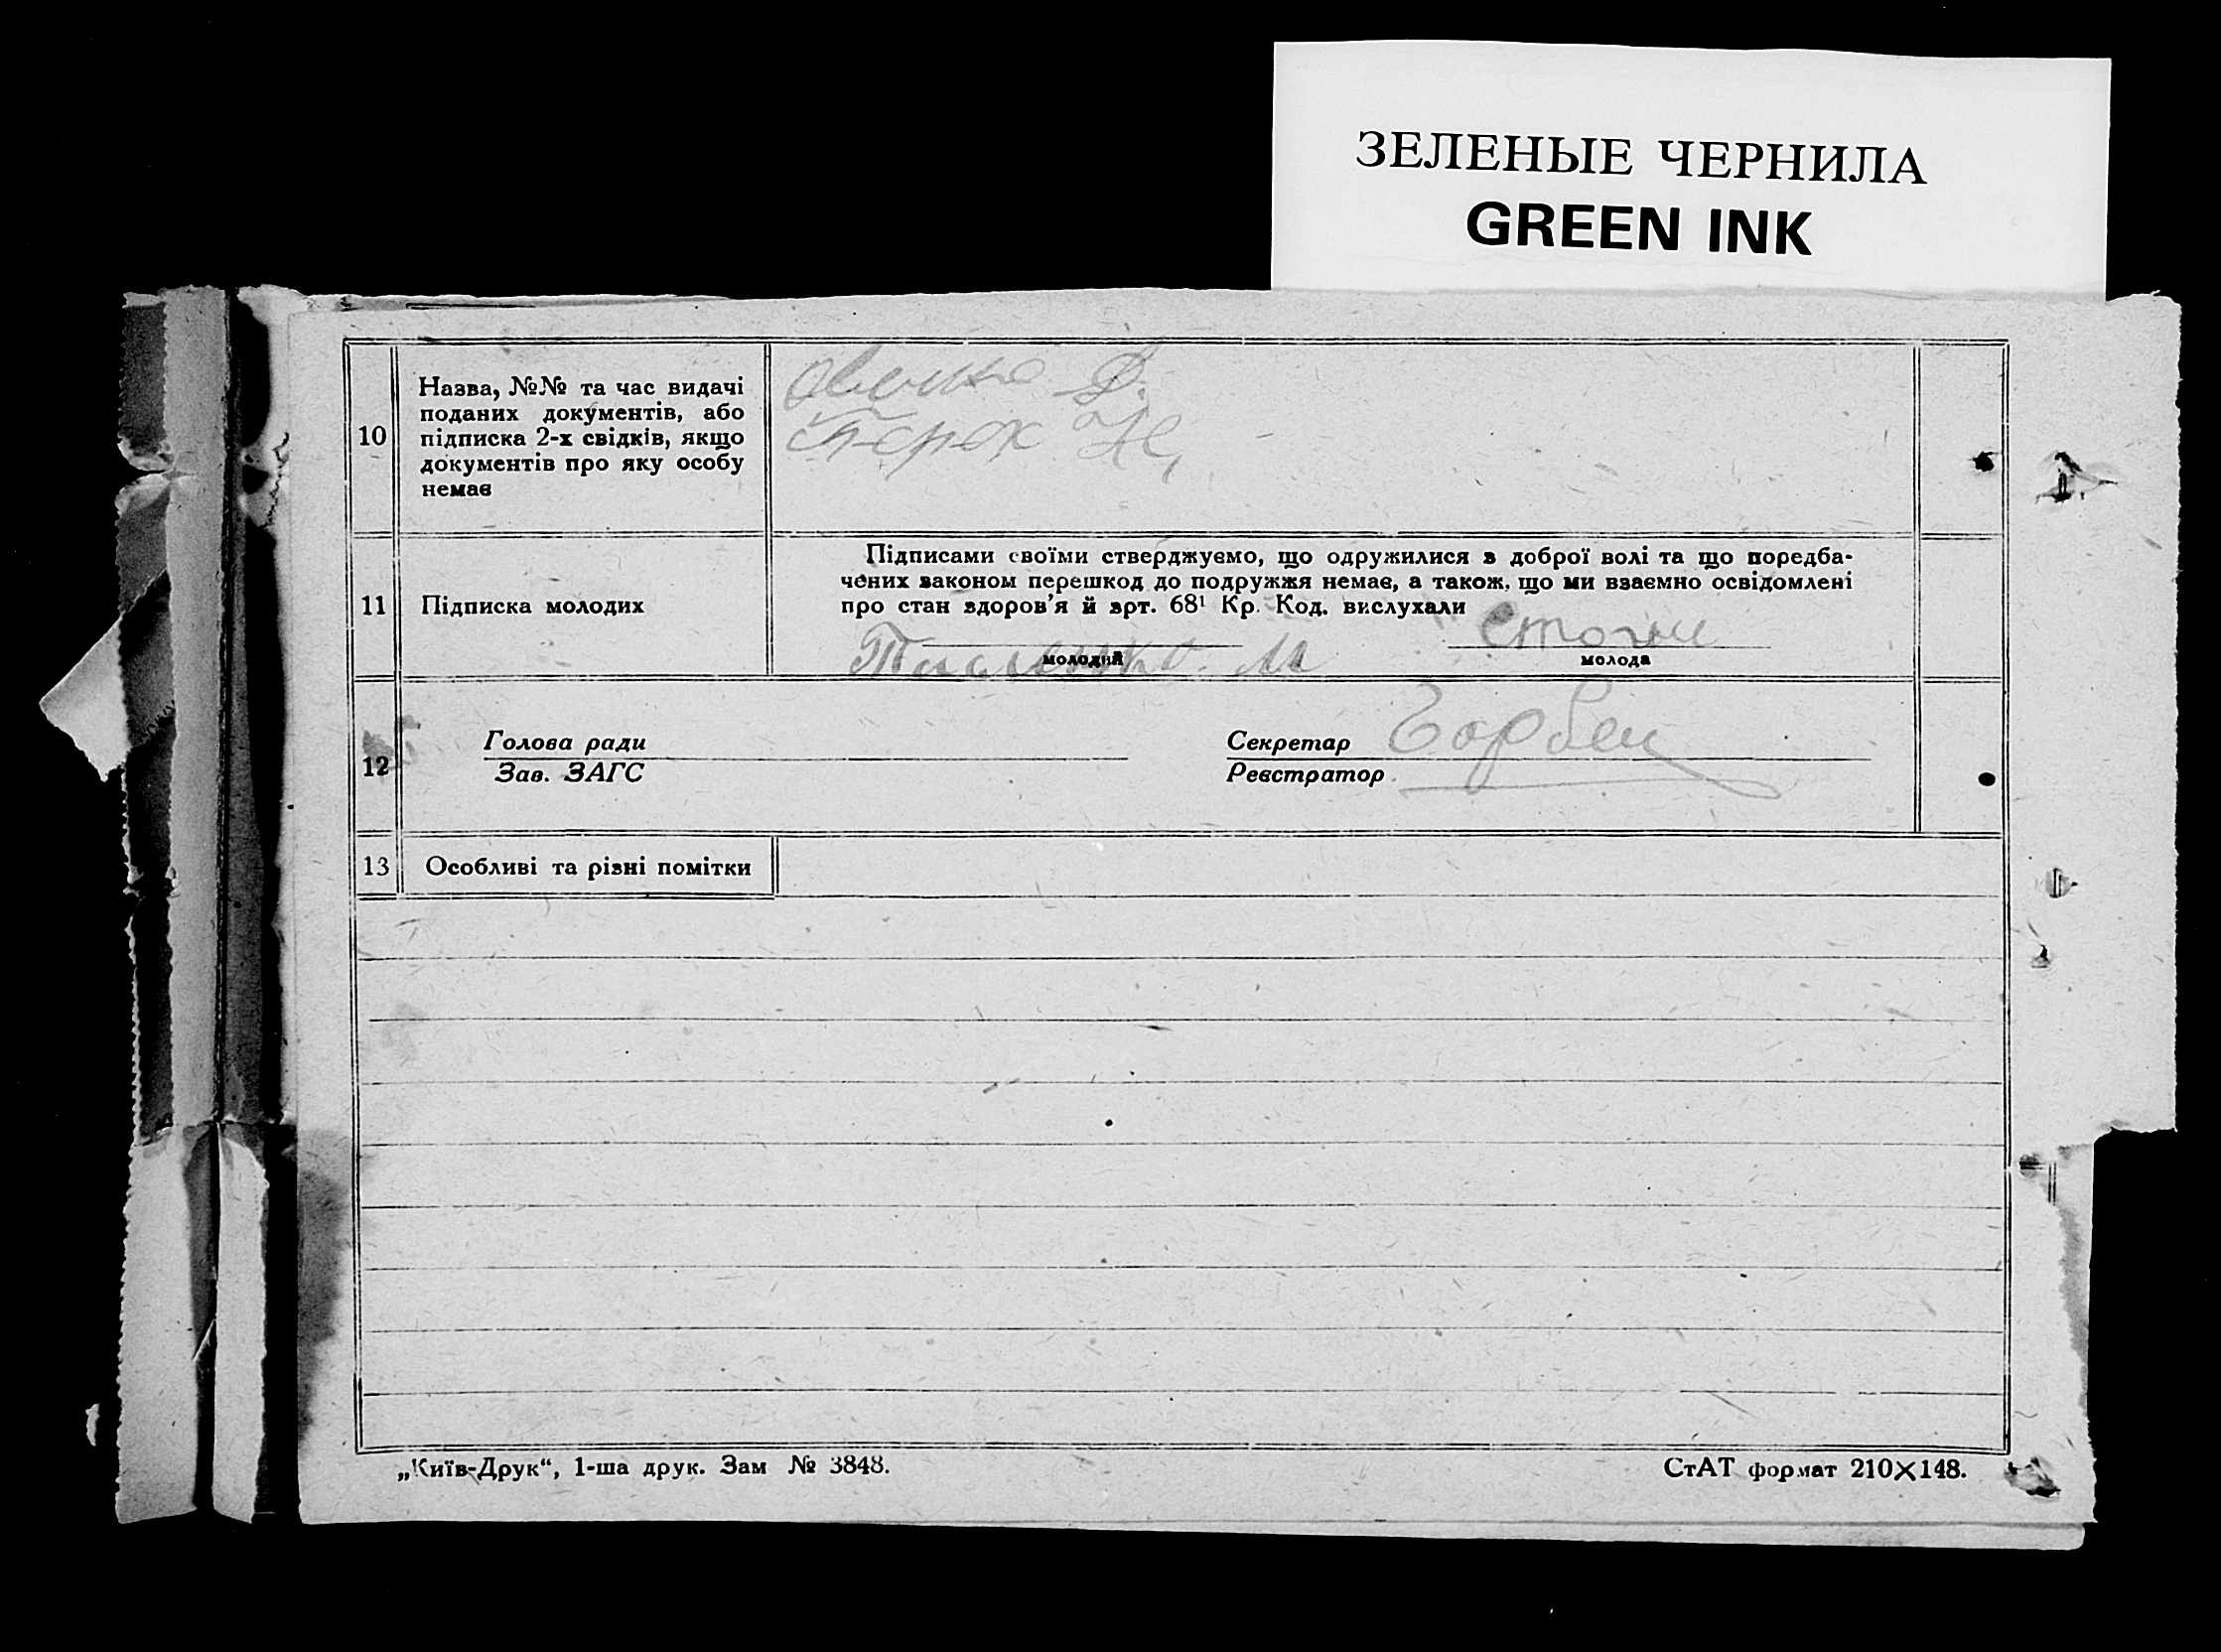 ЗЕЛЕНЫЕ ЧЕРНИЛА
GREEN INK
10
Назва, №№ та час видачі
поданих документів, або
підписка 2-х свідків, якщо
документів про яку особу
немає
11
Підписка молодих
Підписами своїми стверджуємо, що одружилися з доброї волі та що поредба-
чених законом перешкод до подружжя немає, а також, що ми взаємно освідомлені
про стан здоров'я й арт. 68¹ Кр. Код. вислухали
молодий
молода
12
Голова ради
Зав. ЗАГС
Секретар
Реєстратор
13
Особливі та різні помітки
„Київ-Друк“, 1-ша друк. Зам № 3848.
СтАТ формат 210×148.